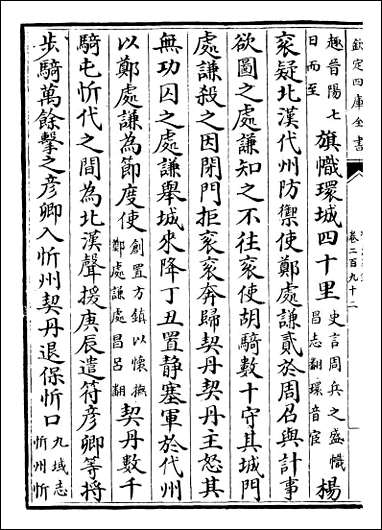 欽定四庫全書
卷二百九十二
趣晉陽七日而至旗幟環城四十里史言周兵之盛幟昌志翻環音宦楊
衮疑北漢代州防禦使鄭處謙貳於周召與計事
欲圖之處謙知之不往衮使胡騎數十守其城門
處謙殺之因閉門拒衮衮奔歸契丹契丹王怒其
無功囚之處謙舉城來降丁丑置静塞軍於代州
以鄭處謙為節度使創置方鎮以懷撫鄭處謙處昌呂翻契丹數千
騎屯忻代之間為北漢聲援庚辰遣符彦卿等將
步騎萬餘擊之彦卿入忻州契丹退保忻口九域志忻州忻